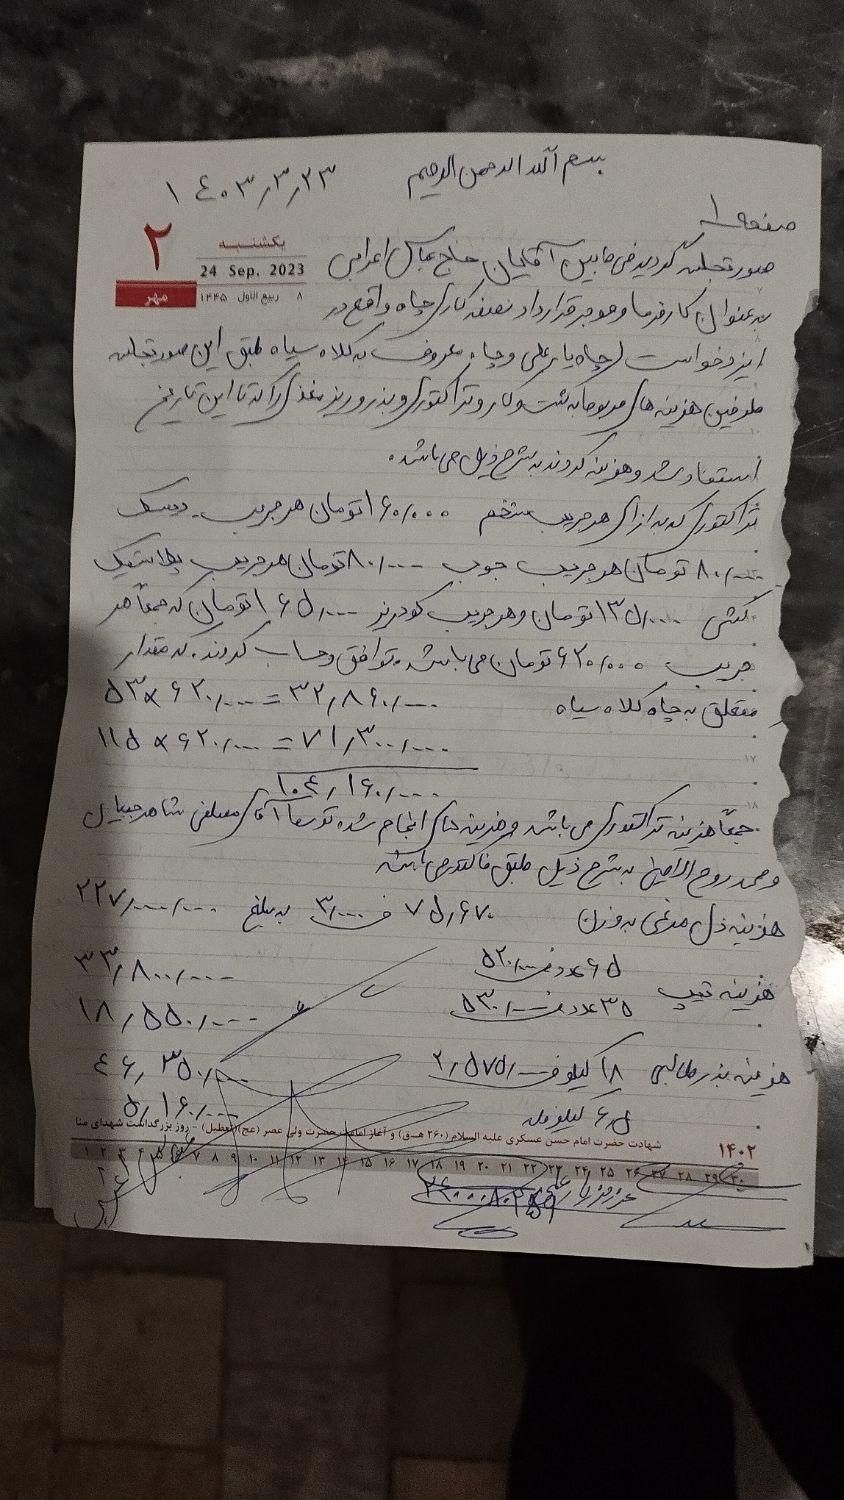 بسم الله الرحمن الرحیم
۱۴۰۳٫۳٫۲۳
صفحه ۱
۲
مهر
یکشنبه
24 Sep. 2023
۸ ربیع الاول ۱۴۴۵
صورتجلسه گردید فی مابین آقایان حاج عباس اعرابی
به عنوان کارفرما و موجر قرارداد نصفه کاری چاه واقع در
ایزدخواست (چاه یار علی و چاه معروف به کلاه سیاه طبق این صورتجلسه
طرفین هزینه های مربوط به کشت و کار و تراکتوری و بذر و ریز مغذی را که تا این تاریخ
استفاده شد و هزینه کردند به شرح ذیل می باشد.
تراکتوری که به ازای هر جریب شخم ۱۶۰/۰۰۰ تومان هر جریب دیسک
۸۰/۰۰۰ تومان هر جریب جوب ۸۰/۰۰۰ تومان هر جریب پلاستیک
کشی ۱۳۵/۰۰۰ تومان و هر جریب کودریز ۱۶۵/۰۰۰ تومان که جمعاً هر
جریب ۶۲۰/۰۰۰ تومان می باشد. توافق و حساب کردند. که مقدار
متعلق به چاه کلاه سیاه ۵۳ × ۶۲۰/۰۰۰ = ۳۲٫۸۶۰/۰۰۰
۱۱۵ × ۶۲۰/۰۰۰ = ۷۱٫۳۰۰/۰۰۰
۱۰۴٫۱۶۰/۰۰۰
جمعاً هزینه تراکتوری می باشد و هزینه های انجام شده توسط آقای مصطفی
و محمد روح الامینی به شرح ذیل طبق فاکتور می باشد
هزینه مرغی به وزن ۷۵٫۶۷۰ ف ۳/۰۰۰ به مبلغ ۲۲۷/۰۰۰/۰۰۰
هزینه تیپ ۶۵ عدد ف ۵۲۰/۰۰۰ ۳۳٫۸۰۰/۰۰۰
۳۵ عدد ف ۵۳۰/۰۰۰ ۱۸٫۵۵۰/۰۰۰
هزینه بذر طالبی ۱۸ کیلو ف ۲٫۵۷۵/۰۰۰ ۴۶٫۳۵۰/۰۰۰
کیلو ۵٫۱۶۰/۰۰۰
شهادت حضرت امام حسن عسکری علیه السلام (۲۶۰ هـ.ق) و آغاز امامت حضرت ولی عصر (عج) (تعطیل) - روز بزرگداشت شهدای منا
۱۴۰۲
۱ ۲ ۳ ۴ ۵ ۶ ۷ ۸ ۹ ۱۰ ۱۱ ۱۲ ۱۳ ۱۴ ۱۵ ۱۶ ۱۷ ۱۸ ۱۹ ۲۰ ۲۱ ۲۲ ۲۳ ۲۴ ۲۵ ۲۶ ۲۷ ۲۸ ۲۹ ۳۰